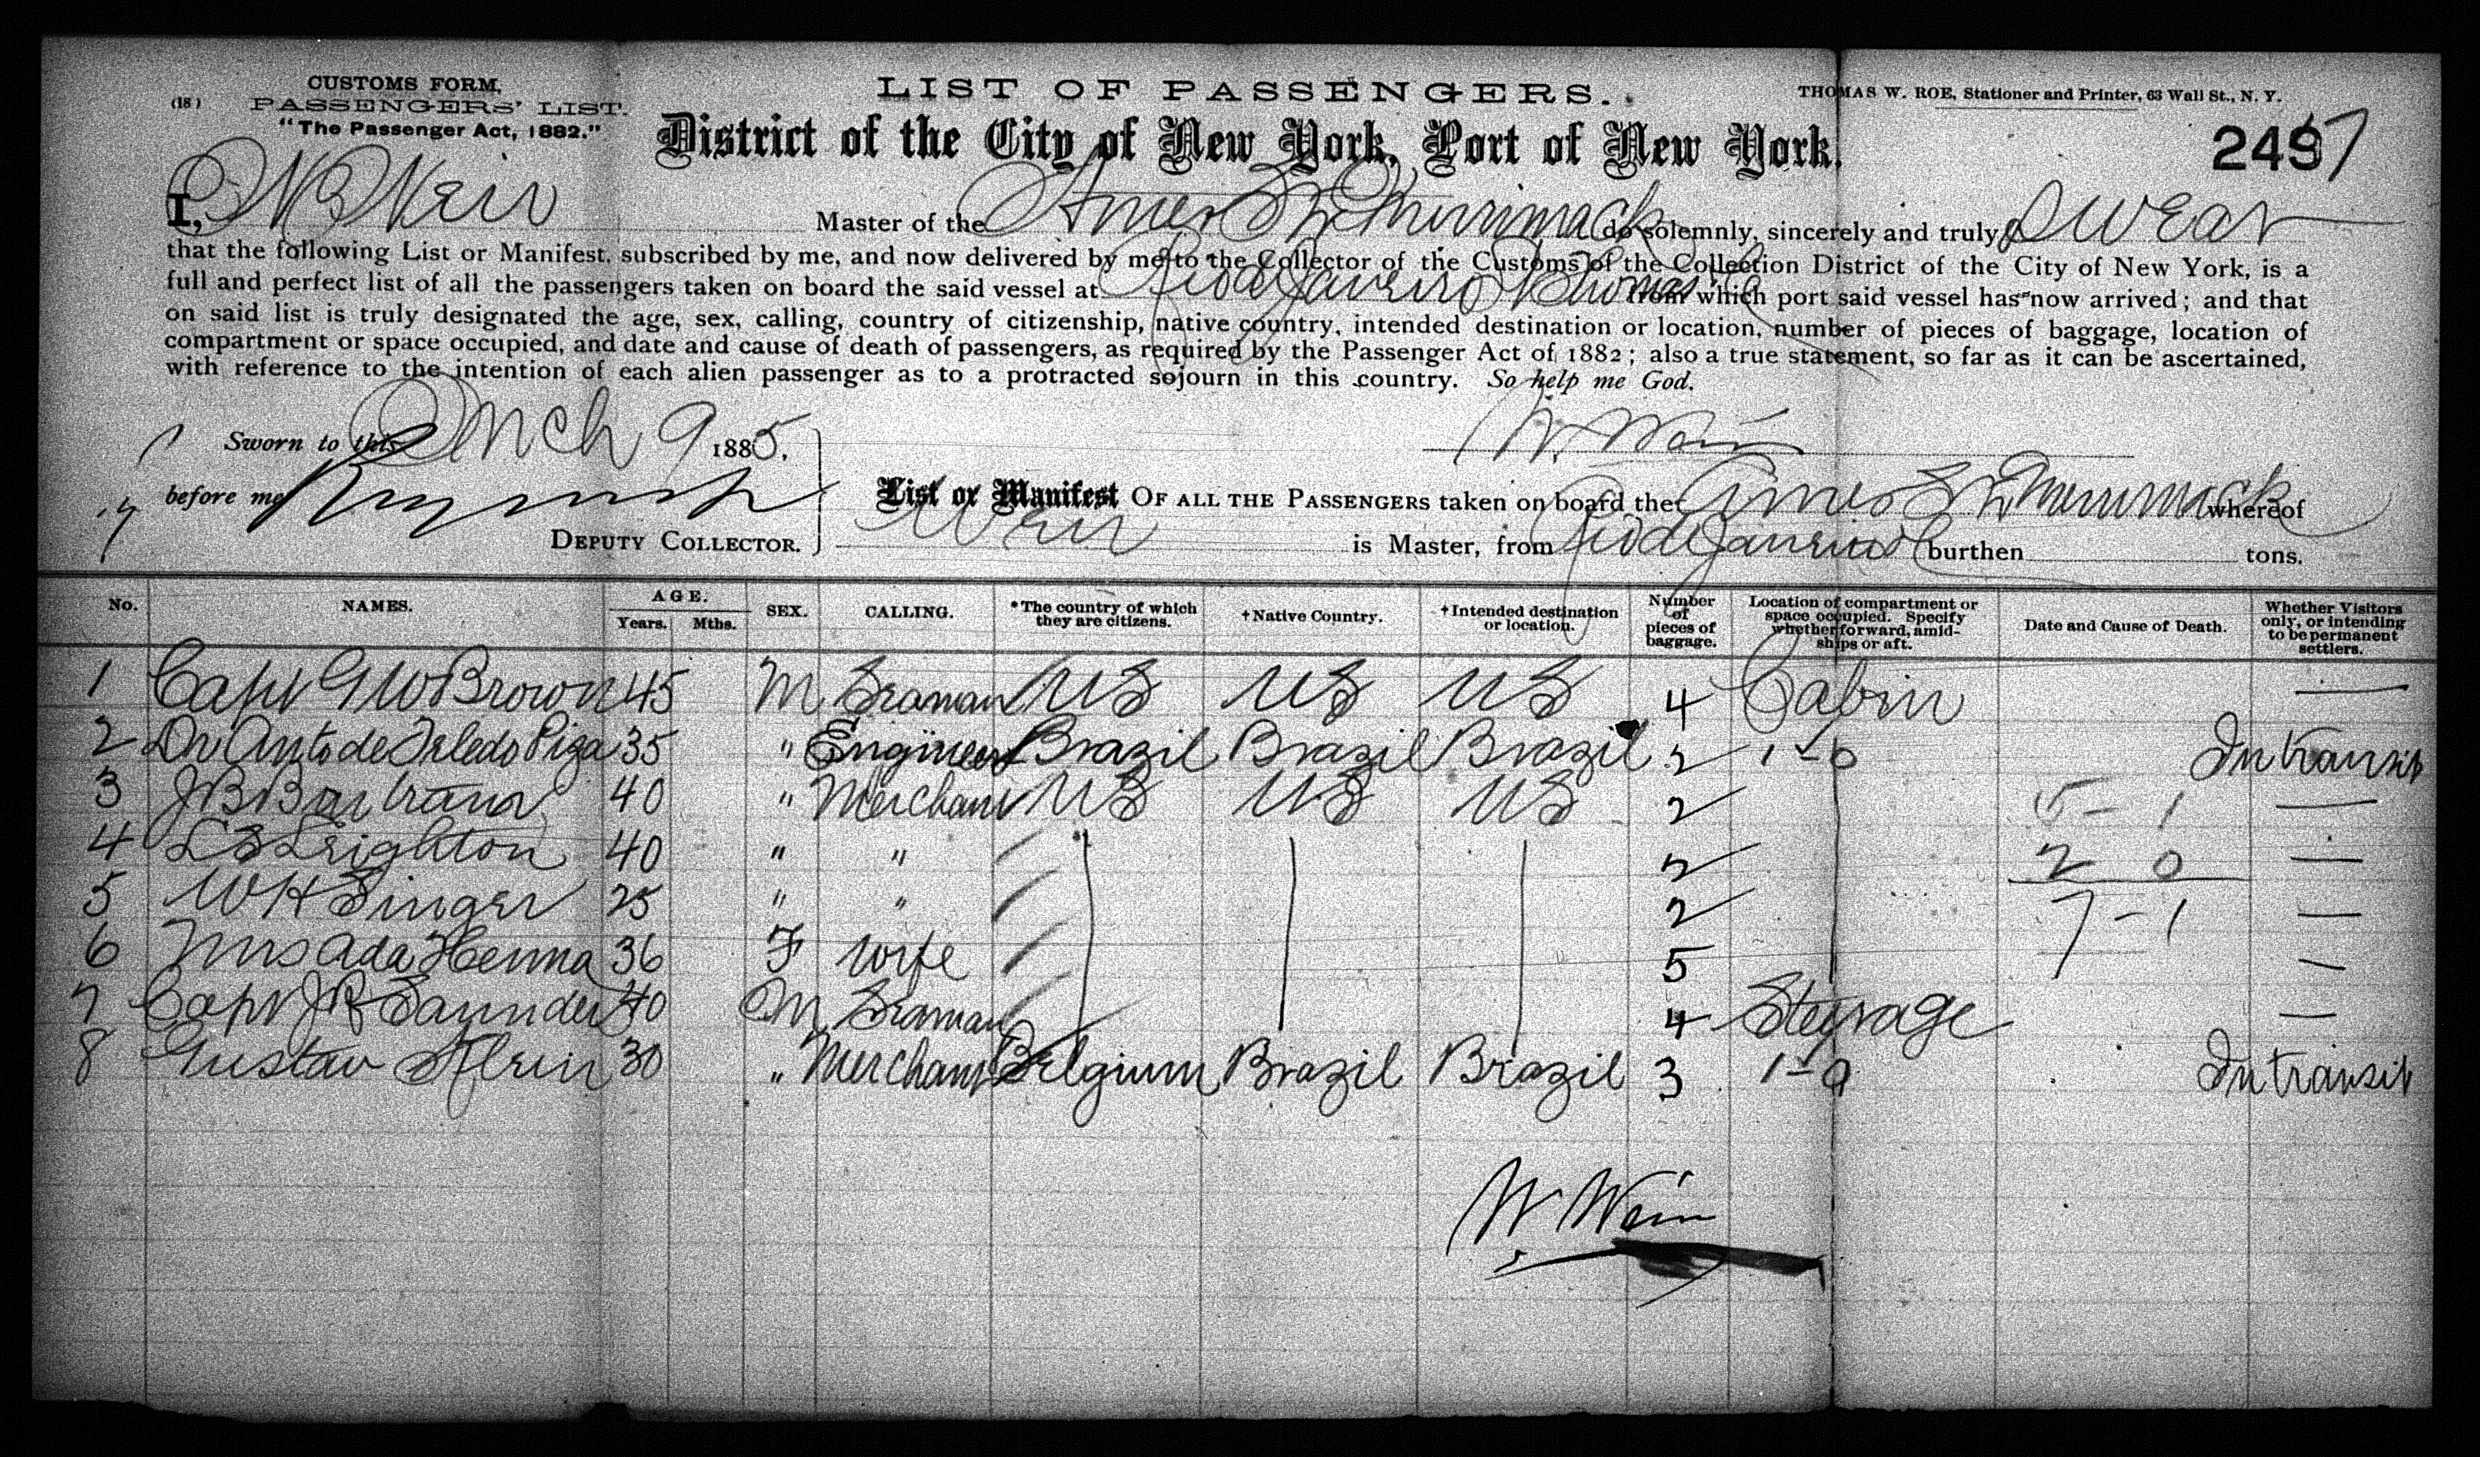 CUSTOMS FORM,
(18) PASSENGERS' LIST.
"The Passenger Act, 1882."
LIST OF PASSENGERS.
THOMAS W. ROE, Stationer and Printer, 63 Wall St., N. Y.
District of the City of New York, Port of New York.
2497
I, W Weir Master of the Amer Str Merrimack do solemnly, sincerely and truly swear
that the following List or Manifest, subscribed by me, and now delivered by me to the Collector of the Customs of the Collection District of the City of New York, is a
full and perfect list of all the passengers taken on board the said vessel at Rio de Janeiro from which port said vessel has now arrived; and that
on said list is truly designated the age, sex, calling, country of citizenship, native country, intended destination or location, number of pieces of baggage, location of
compartment or space occupied, and date and cause of death of passengers, as required by the Passenger Act of 1882; also a true statement, so far as it can be ascertained,
with reference to the intention of each alien passenger as to a protracted sojourn in this country. So help me God.
Sworn to this Mch 9 1885.
W. Weir
before me
DEPUTY COLLECTOR.
List or Manifest OF ALL THE PASSENGERS taken on board the Amer Str Merrimack whereof
Weir is Master, from Rio de Janeiro burthen tons.
No. NAMES. AGE. Years. Mths. SEX. CALLING. *The country of which they are citizens. †Native Country. †Intended destination or location. Number of pieces of baggage. Location of compartment or space occupied. Specify whether forward, amidships or aft. Date and Cause of Death. Whether Visitors only, or intending to be permanent settlers.
1 Capt G W Brown 45 M Seaman US US US 4 Cabin —
2 Dr Anto de Toledo Piza 35 " Engineer Brazil Brazil Brazil 2 1-6 In transit
3 J B Bartram 40 " Merchant US US US 2 5-1 —
4 L S Leighton 40 " " 2 2 0 —
5 W H Singer 25 " " 2 7-1 —
6 Mrs Ada Henna 36 F Wife 5 —
7 Capt J R Saunders 40 M Seaman 4 Steerage —
8 Gustav 30 " Merchant Belgium Brazil Brazil 3 1-9 In transit
W Weir